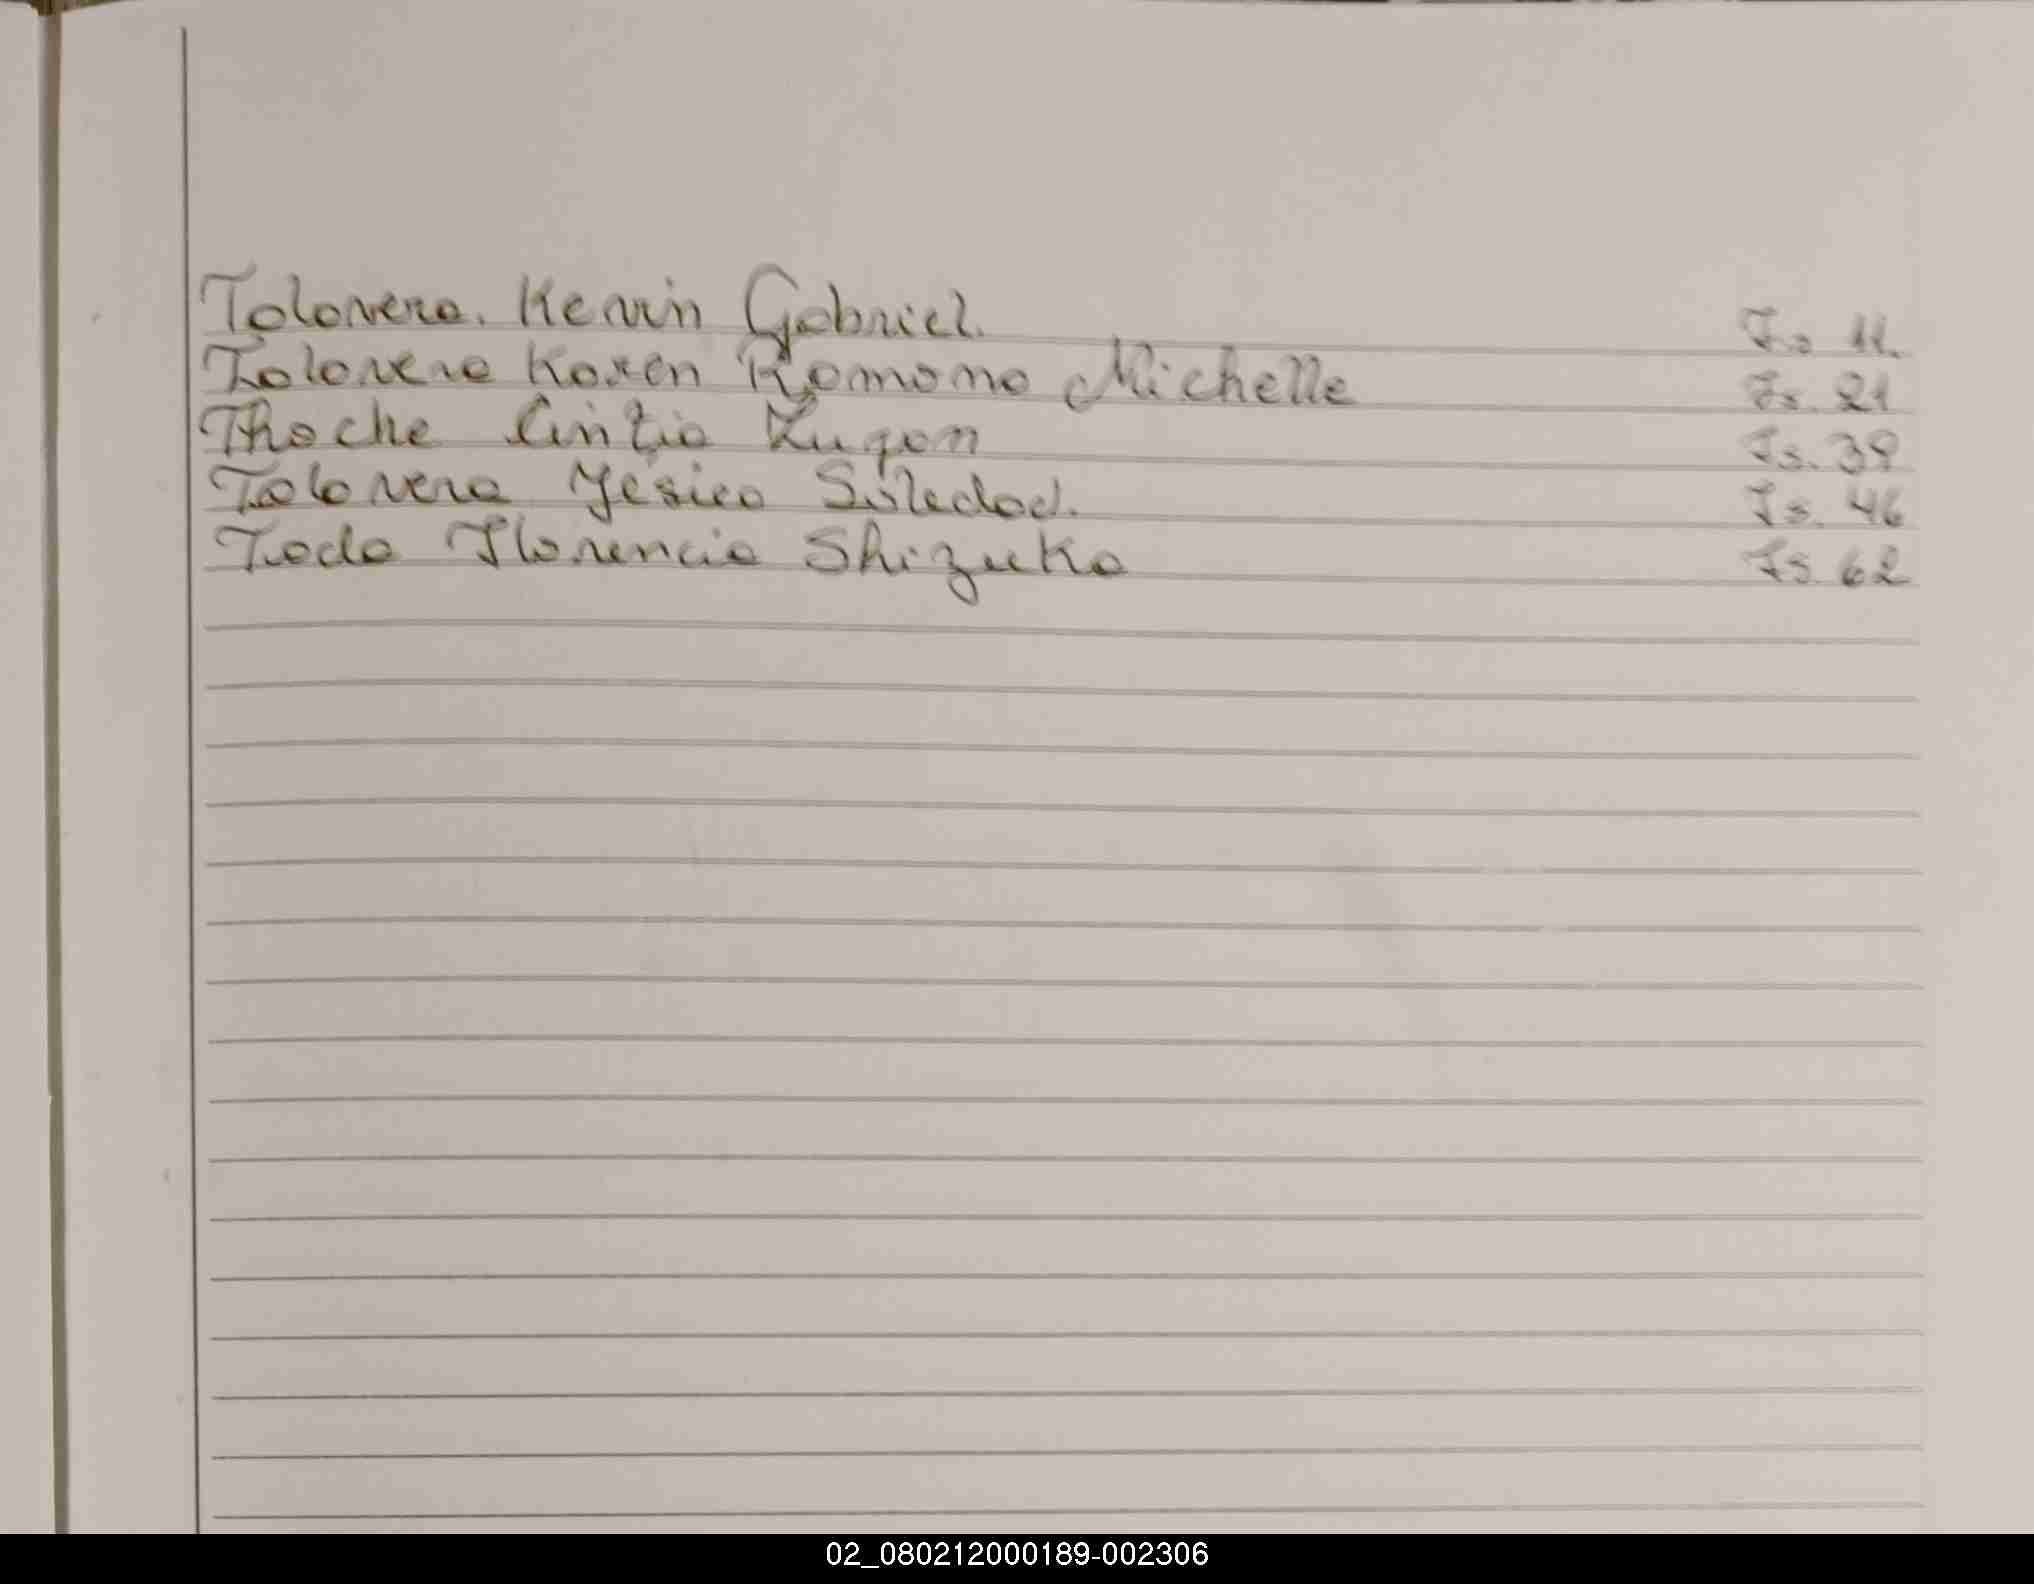 Talavera. Kevin Gabriel. Fs 11.
Talavera Karen Romana Michelle Fs. 21
Thache Cintia Fs. 39
Talavera Yésica Soledad. Fs. 46
Toda Florencia Shizuka Fs. 62
02_080212000189-002306